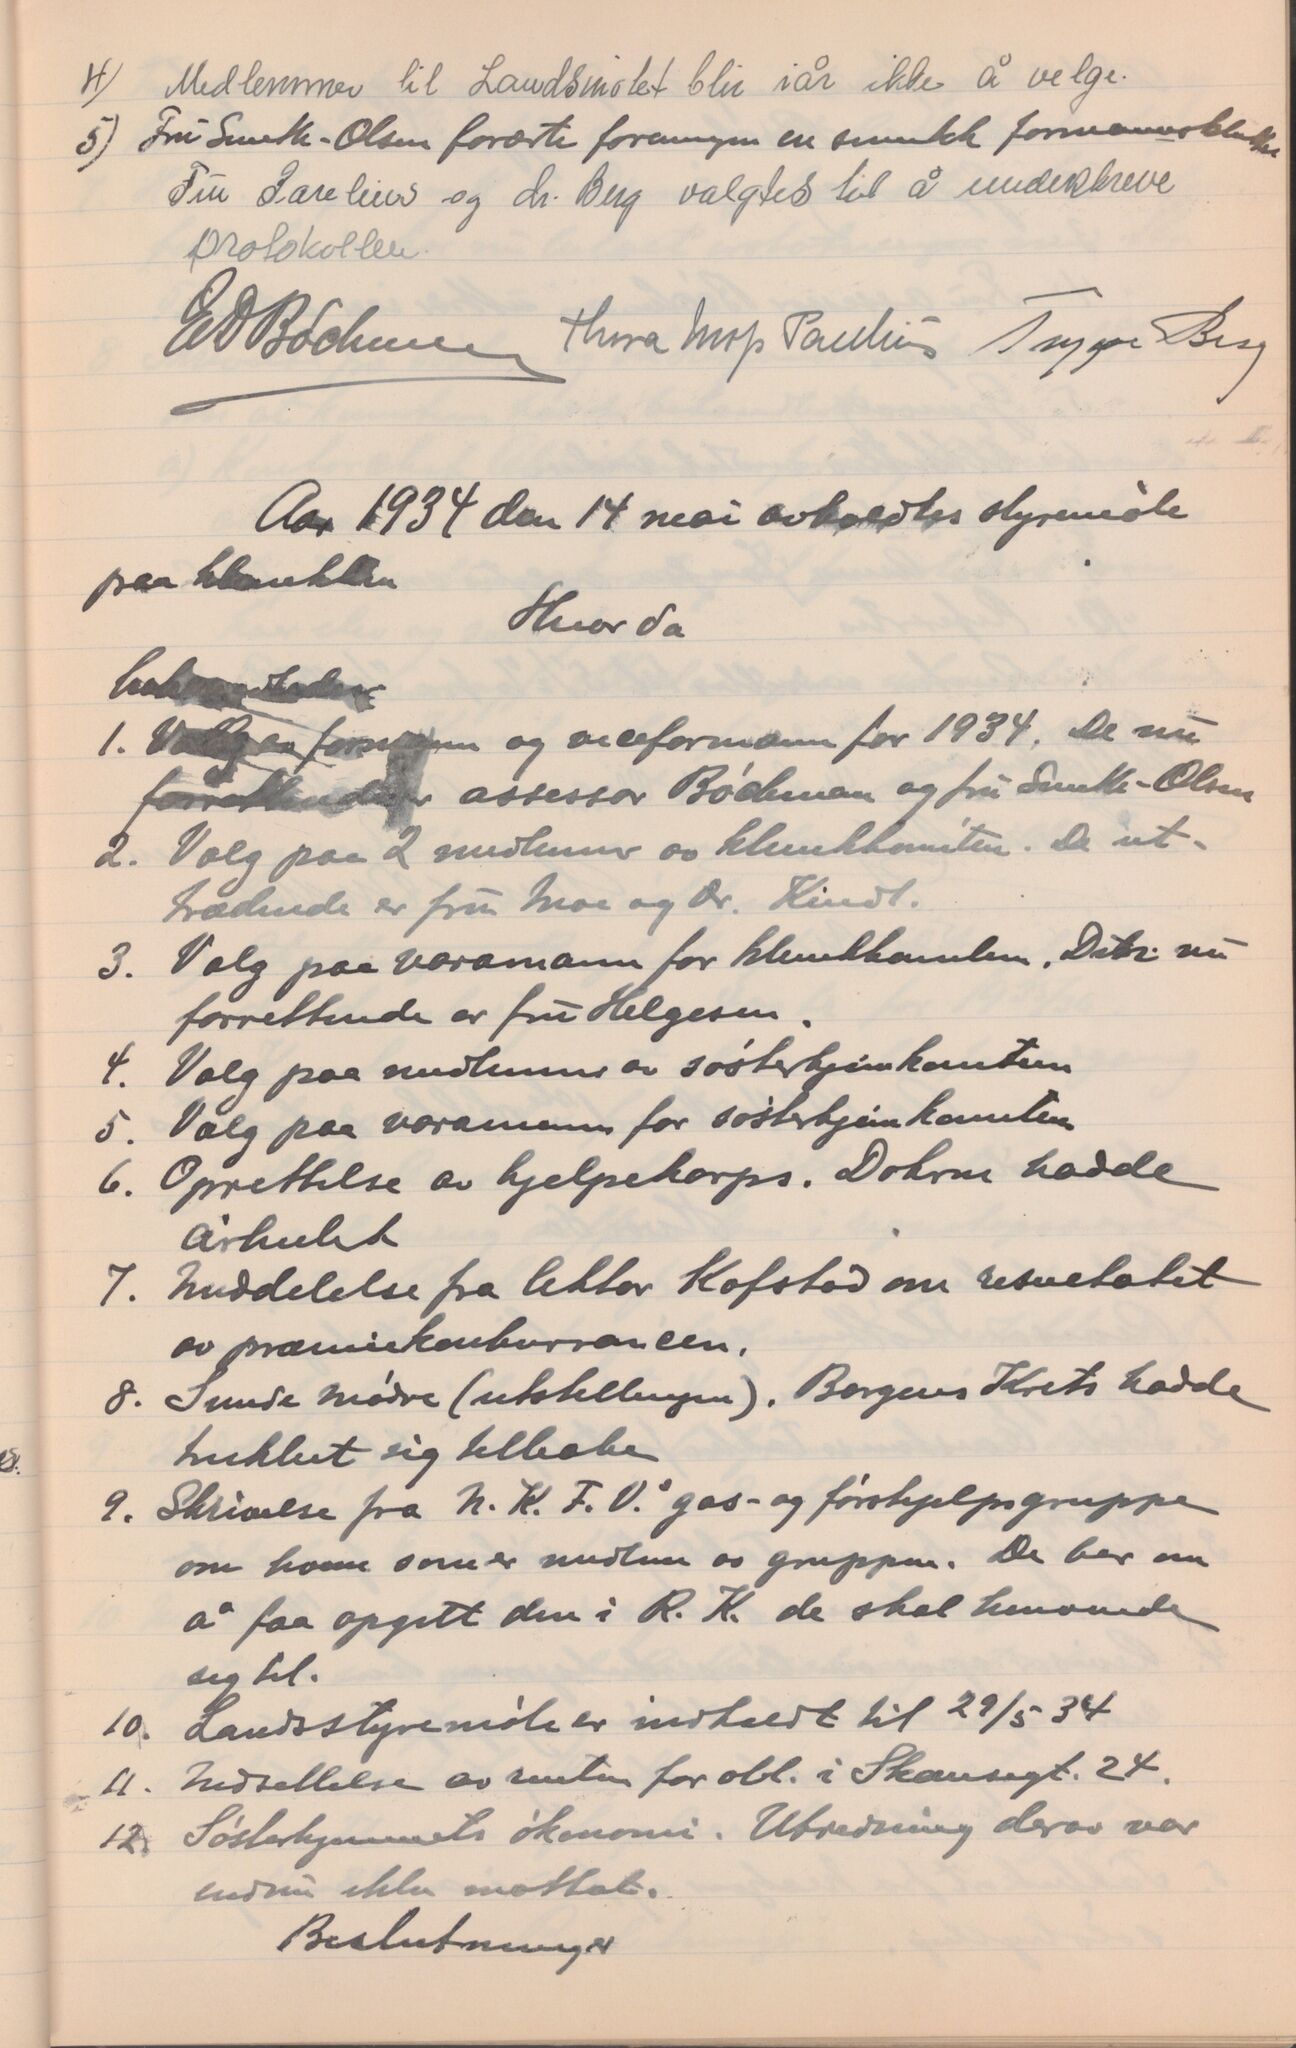 4) Medlemmer til Landsmötet blir iår ikke å velge.
5) Frü Smith-Olsen forærte foreningen en smukk formannsklubbe
Frü Parelius og dr. Berg valgtes til å underskreve
protokollen.
E D Böchman Thora Parelius Trygve Berg
Aar 1934 den 14 mai avholdtes styremöte
paa klinikken
Hvor da
behandledes
1. Valg av formann og viceformann for 1934. De nü
forrettende er assessor Böchman og frü Smith-Olsen
2. Valg paa 2 medlemmer av klinikkomiteen. De ut-
trædende er frü Moe og Dr. Kindt.
3. Valg paa varamann for klinikkomiteen. Den nü
forrettende er frü Helgesen.
4. Valg paa medlemmer av sösterhjemkomiteen
5. Valg paa varamann for sösterhjemkomiteen
6. Oprettelse av hjelpekorps. Dohrne hadde
arbeidet
7. Meddelelse fra lektor Kofstad om resultatet
av præmiekonkurrancen.
8. Sunde mödre (utstillingen). Borgens Krets hadde
trukket sig tilbake
9. Skrivelse fra N. K. F. V.s gas- og förshjelpsgruppe
om hvem som er medlem av gruppen. De ber om
å faa opgitt den i R. K. de skal henvende
sig til.
10. Landsstyremöte er indkaldt til 29/5 34
11. Nedsettelse av renten for obl. i Skansegt. 24.
12. Sösterhjemmets ökonomi. Utredning derav var
endnü ikke mottat.
Beslutninger